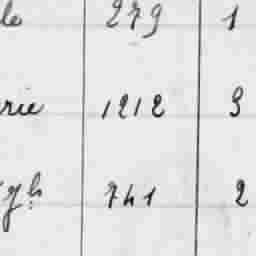 le 279 1
rie 1212 3
gh 741 2